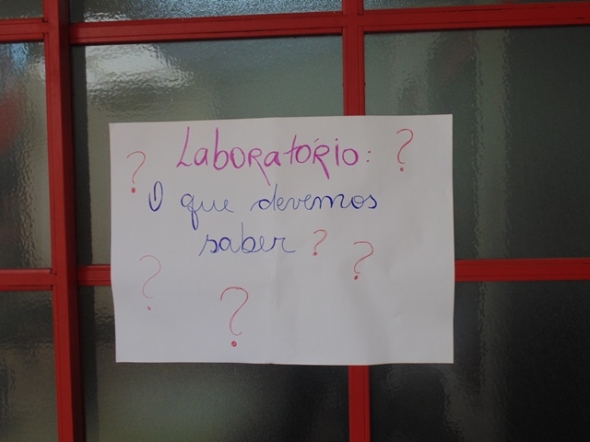 ? Laboratório: ?
O que devemos
saber ? ?
? ?